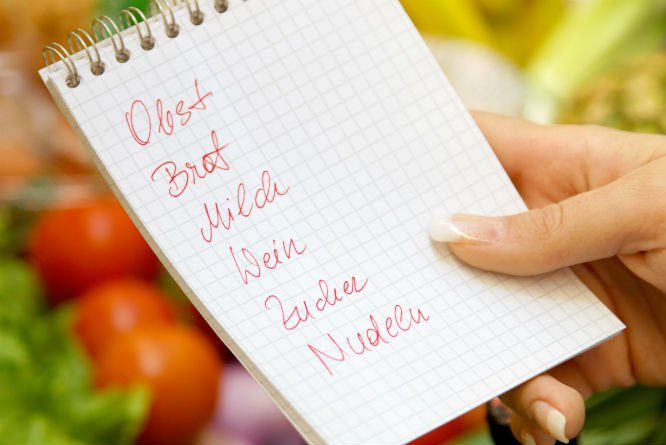 Obst
Brot
Milch
Wein
Zucher
Nudeln